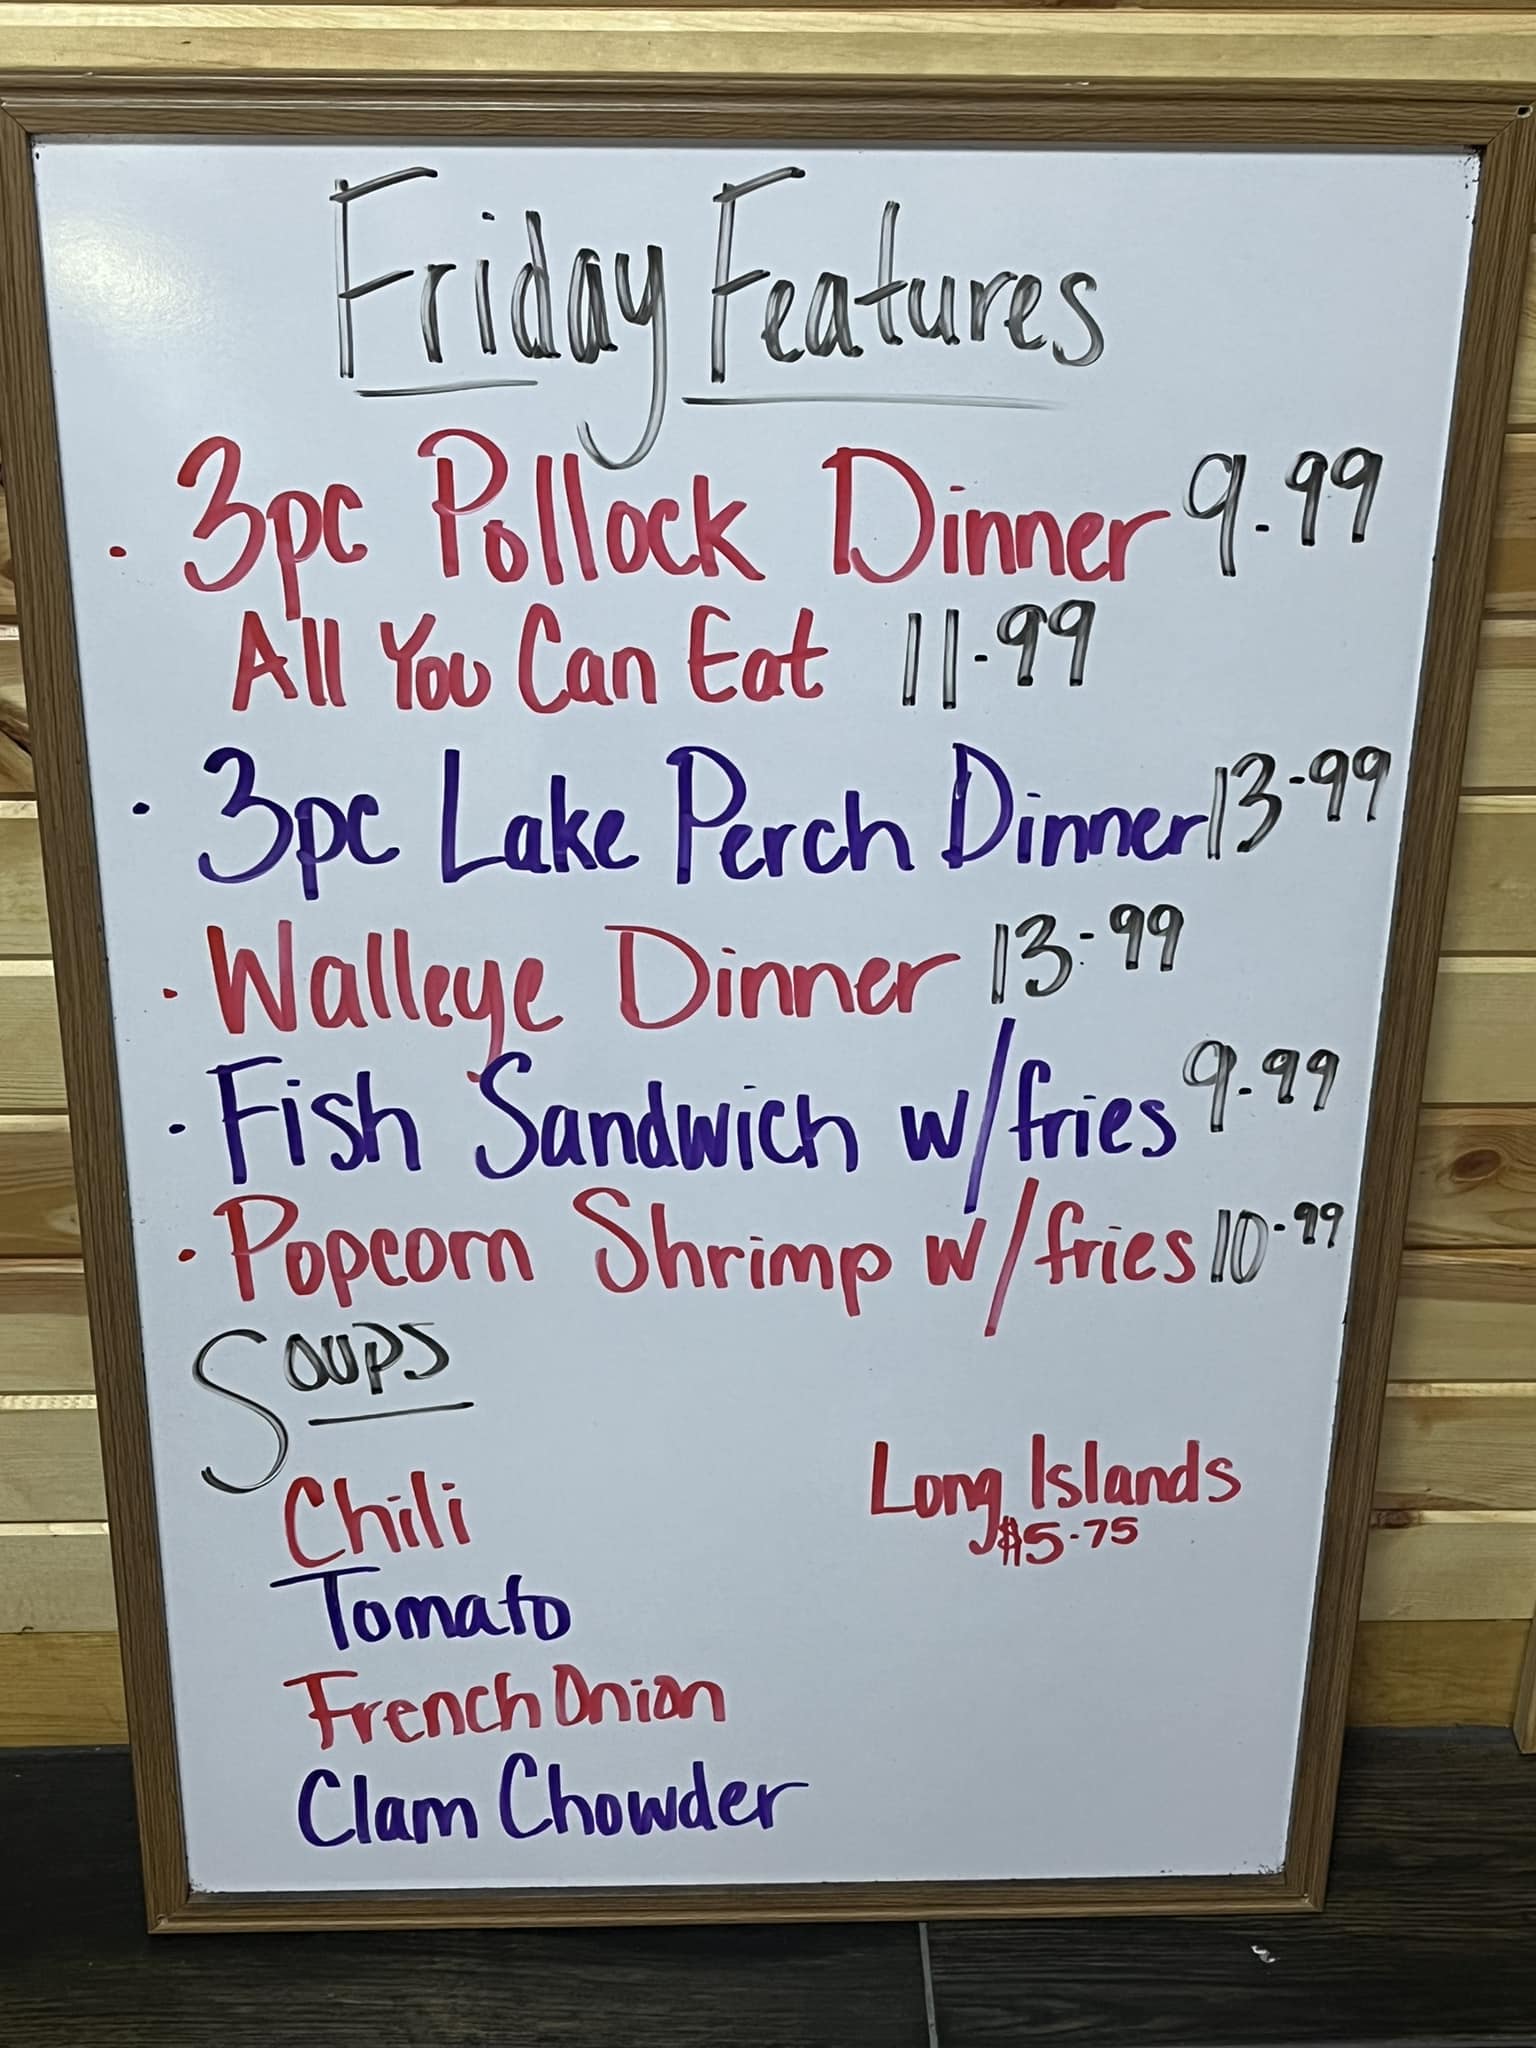 Friday Features
· 3pc Pollock Dinner 9.99
All You Can Eat 11.99
· 3pc Lake Perch Dinner 13.99
· Walleye Dinner 13.99
· Fish Sandwich w/fries 9.99
· Popcorn Shrimp w/fries 10.99
Soups
Chili
Tomato
French Onion
Clam Chowder
Long Islands
$5.75